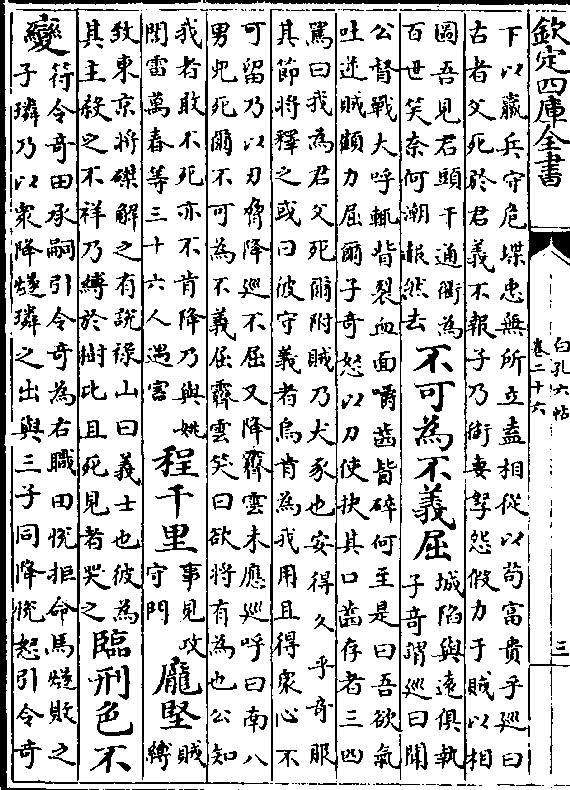 欽定四庫全書
白孔六帖
卷二十六
三
下以羸兵守危堞忠無所立盍相從以苟富貴乎巡曰
古者父死於君義不報子乃銜妻孥怨假力于賊以相
圖吾見君頭干通衢為
百世笑奈何潮赧然去
不可為不義屈
城陷與遠俱執
子奇謂巡曰聞
公督戰大呼輒眥裂血面嚼齒皆碎何至是曰吾欲氣
吐逆賊顧力屈爾子奇怒以刀使抉其口齒存者三四
罵曰我為君父死爾附賊乃犬豕也安得久乎奇服
其節將釋之或曰彼守義者烏肯為我用且得衆心不
可留乃以刃脅降巡不屈又降霽雲未應巡呼曰南八
男兒死爾不可為不義屈霽雲笑曰欲將有為也公知
我者敢不死亦不肯降乃與姚
誾雷萬春等三十六人遇害
程千里
事見攻
守門
龐堅
賊
縛
致東京將磔解之有說祿山曰義士也彼為
其主殺之不祥乃縛於樹比且死見者哭之
臨刑色不
變
符令奇田承嗣引令奇為右職田悅拒命馬燧敗之
子璘乃以衆降燧璘之出與三子同降悅怒引令奇